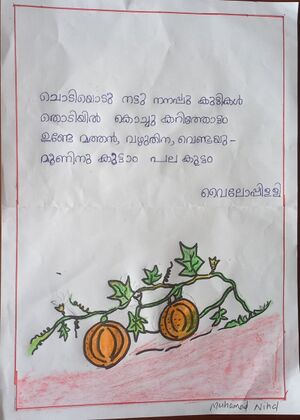 ചൊടിയൊടു നട്ടു നനപ്പൂ കുട്ടികൾ
തൊടിയിൽ കൊച്ചു കറിത്തോട്ടം
ഉണ്ടേ മത്തൻ, വഴുതിന, വെണ്ടയു -
മൂണിനു കൂട്ടാം പല കൂട്ടം
വൈലോപ്പിള്ളി
Muhamed Nihal